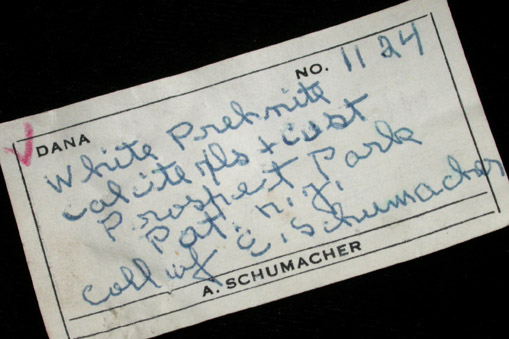 NO. 1124
DANA
White Prehnite
calcite xls + cast
Prospect Park
Pat. n.j.
coll of E. Schumacher
A. SCHUMACHER